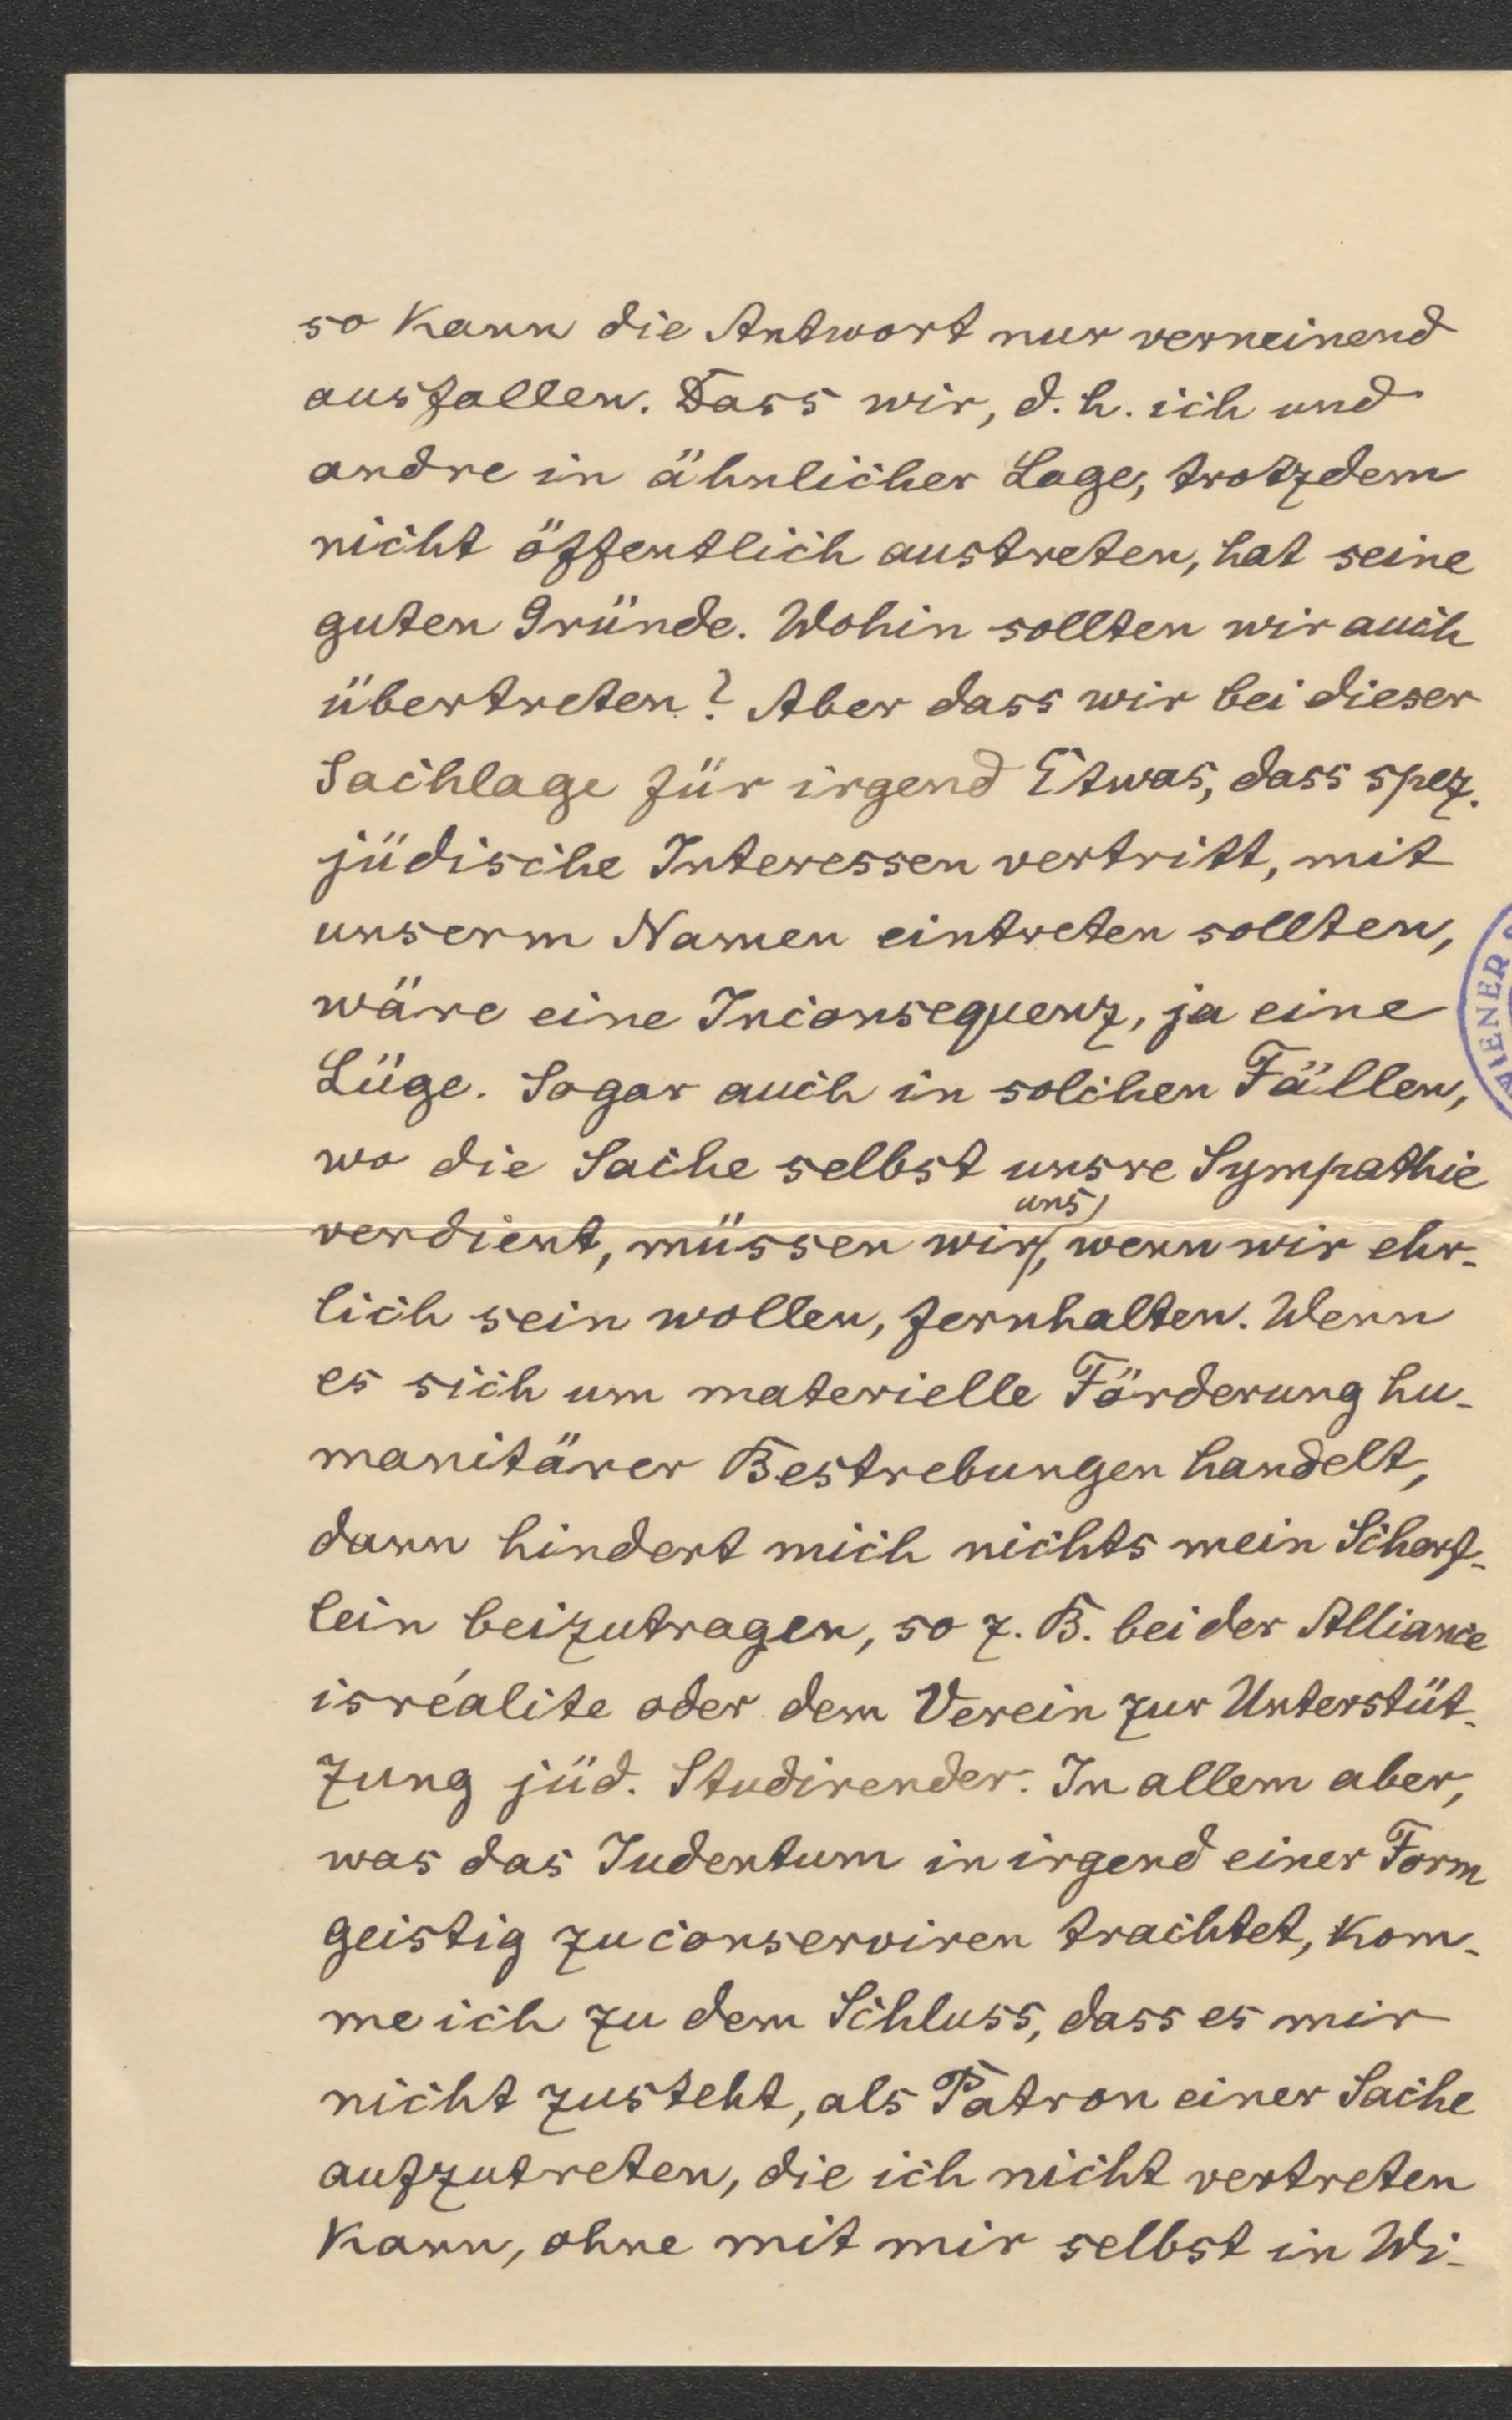 so kann die Antwort nur verneinend
ausfallen. Dass wir, d. h. ich und
andre in ähnlicher Lage, trotzdem
nicht öffentlich austreten, hat seine
guten Gründe. Wohin sollten wir auch
übertreten? Aber dass wir bei dieser
Sachlage für irgend Etwas, dass spez.
jüdische Interessen vertritt, mit
unserm Namen eintreten sollten,
wäre eine Inconsequenz, ja eine
Lüge. Sogar auch in solchen Fällen,
wo die Sache selbst unsre Sympathie
uns
verdient, müssen wir, wenn wir ehr-
lich sein wollen, fernhalten. Wenn
es sich um materielle Förderung hu-
manitärer Bestrebungen handelt,
dann hindert mich nichts mein Scherf-
lein beizutragen, so z. B. bei der Alliance
isréalite oder dem Verein zur Unterstüt-
zung jüd. Studirender. In allem aber,
was das Judentum in irgend einer Form
geistig zu conserviren trachtet, kom-
me ich zu dem Schluss, dass es mir
nicht zusteht, als Patron einer Sache
aufzutreten, die ich nicht vertreten
kann, ohne mit mir selbst in Wi-
WIENER